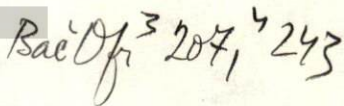 BačOfr³ 207, ⁴ 243